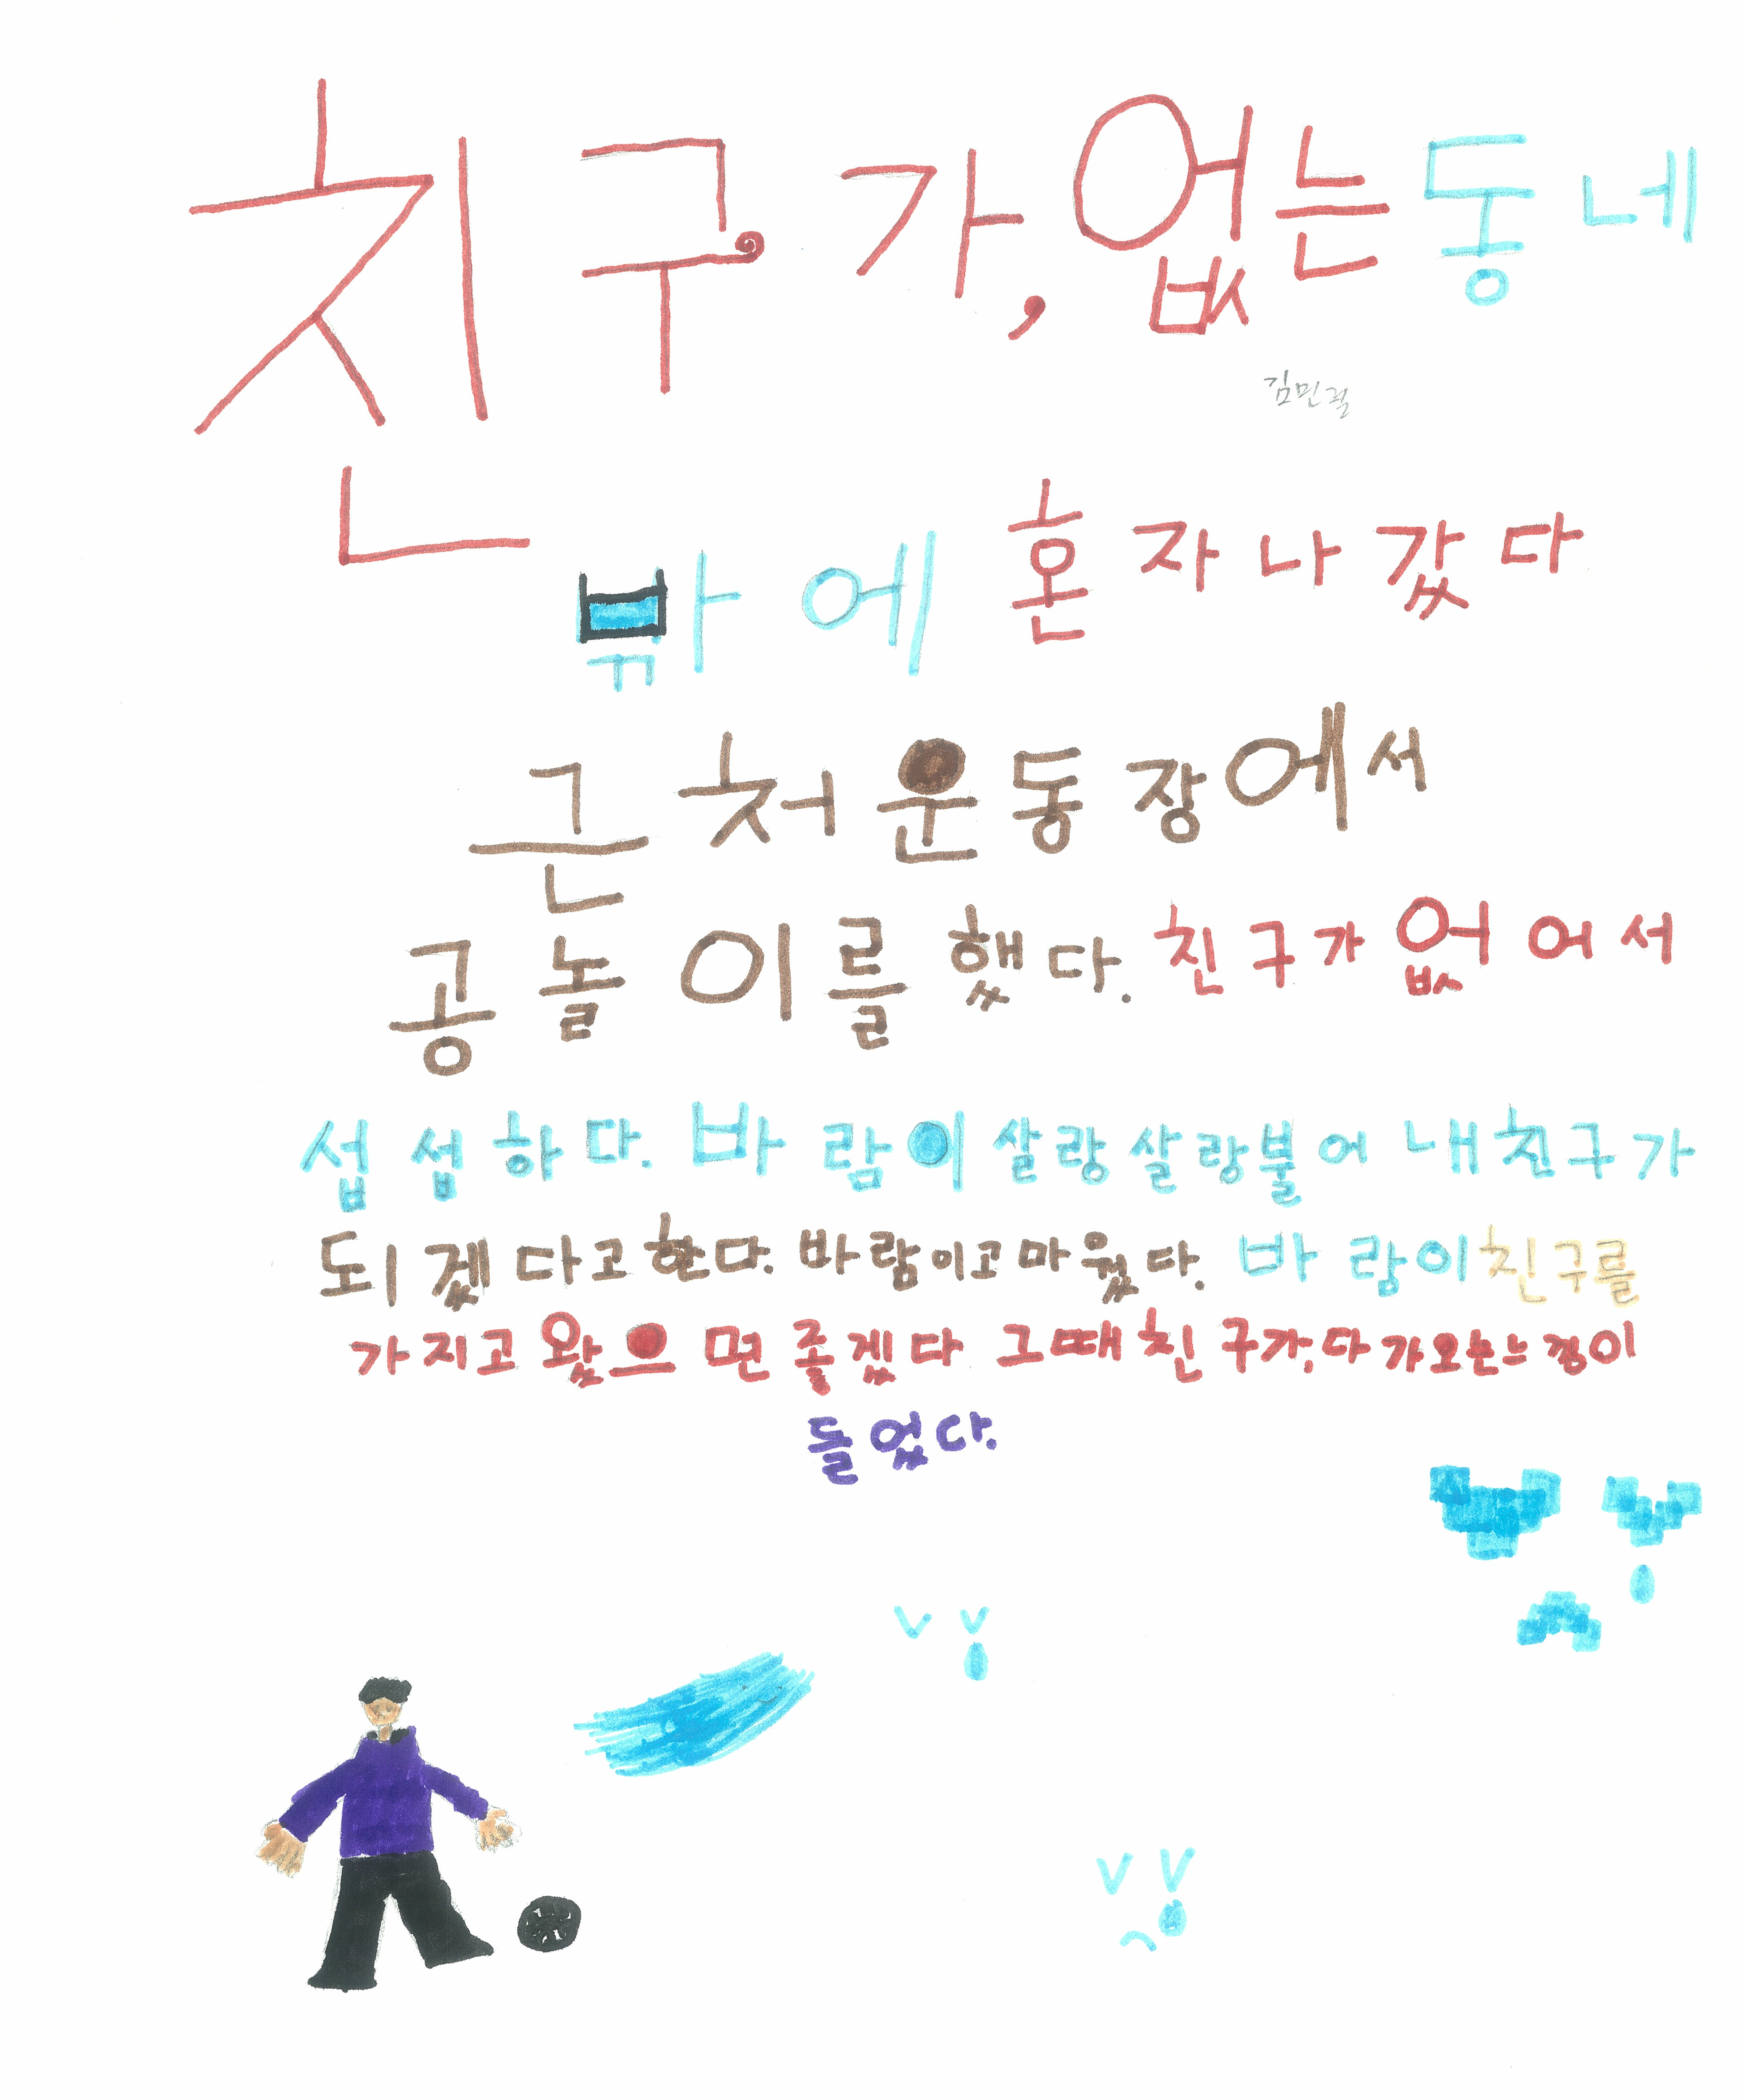 친구가, 없는 동네
밖에 혼자 나갔다
근처 운동장에서
공놀이를 했다. 친구가 없어서
섭섭하다. 바람이 살랑살랑 불어 내 친구가
되겠다고 한다. 바람이 고마웠다. 바람이 친구를
가지고 왔으면 좋겠다 그때 친구가, 다가오는
들었다.